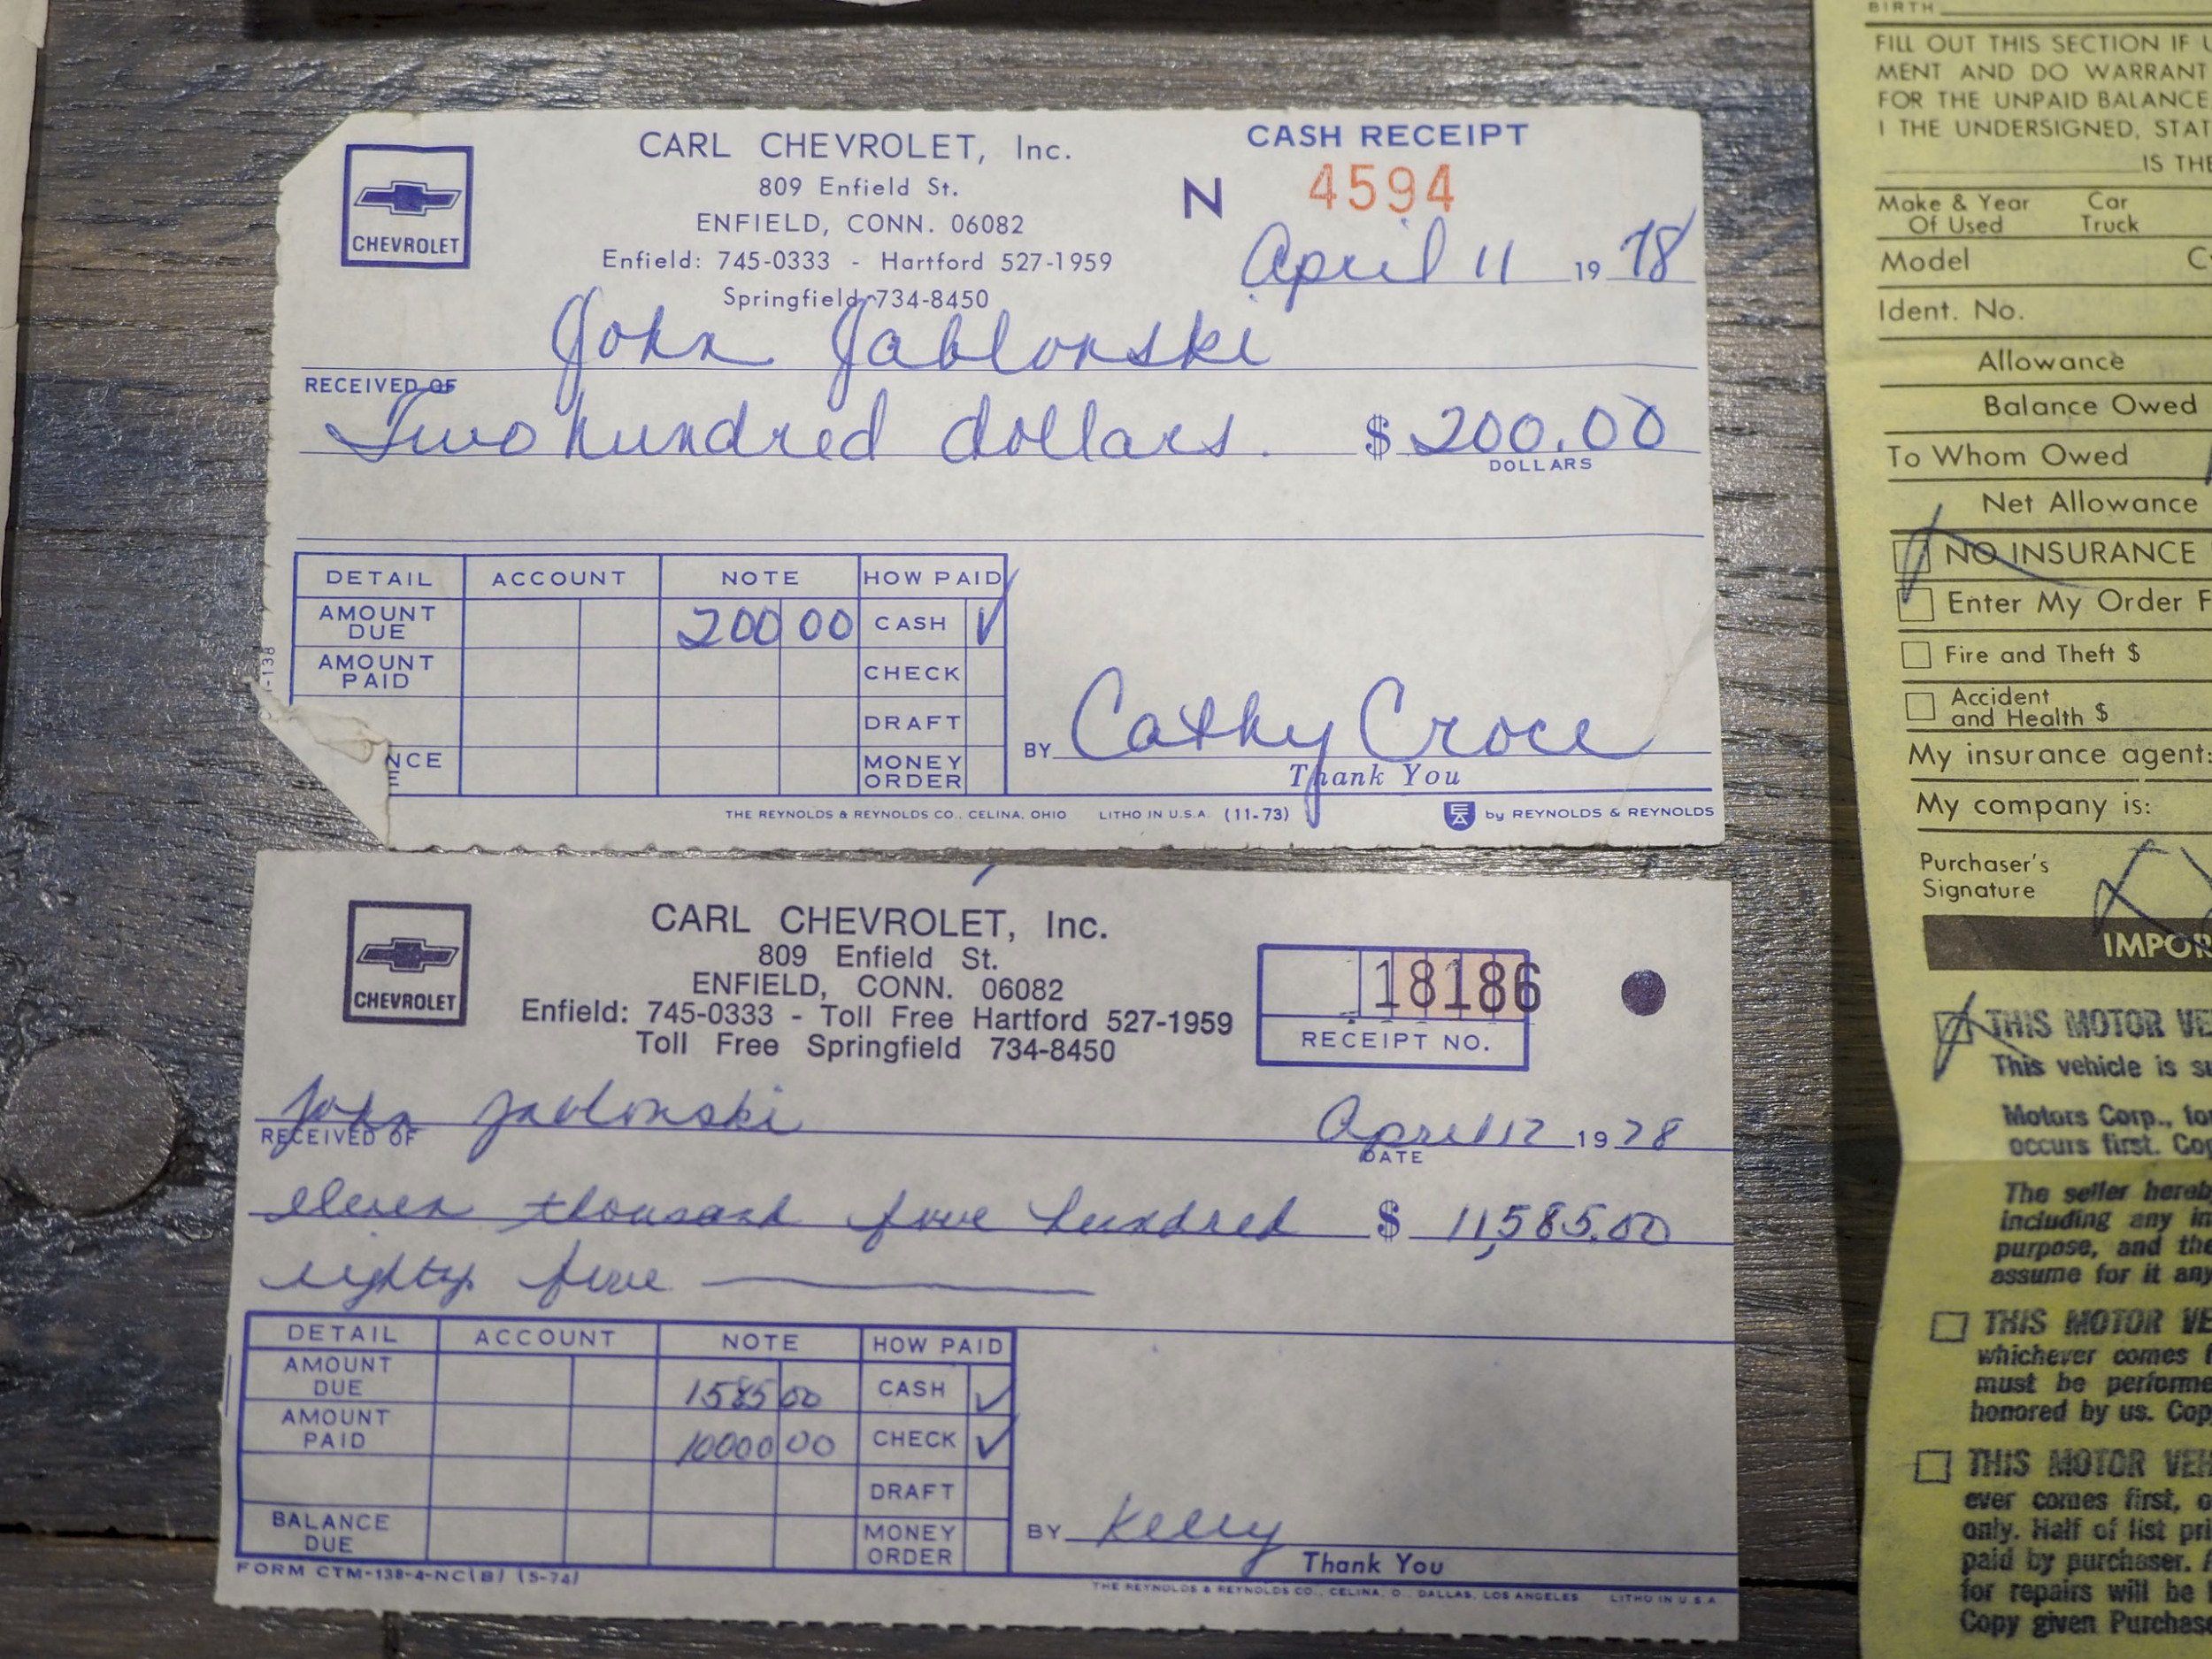 CARL CHEVROLET, Inc.
809 Enfield St.
ENFIELD, CONN. 06082
Enfield: 745-0333 - Hartford 527-1959
Springfield 734-8450
CHEVROLET
CASH RECEIPT
N 4594
April 11 1978
John Jablonski
RECEIVED OF
Two hundred dollars. $ 200.00
DOLLARS
DETAIL ACCOUNT NOTE HOW PAID
AMOUNT DUE 200 00 CASH ✓
AMOUNT PAID CHECK
DRAFT
NCE MONEY ORDER
-138
BY Cathy Croce
Thank You
THE REYNOLDS & REYNOLDS CO., CELINA, OHIO LITHO IN U.S.A. (11-73) by REYNOLDS & REYNOLDS
CHEVROLET
CARL CHEVROLET, Inc.
809 Enfield St.
ENFIELD, CONN. 06082
Enfield: 745-0333 - Toll Free Hartford 527-1959
Toll Free Springfield 734-8450
18186
RECEIPT NO.
John Jablonski April 12 1978
RECEIVED OF DATE
eleven thousand five hundred $ 11,585.00
eighty five
DETAIL ACCOUNT NOTE HOW PAID
AMOUNT DUE 1585 00 CASH ✓
AMOUNT PAID 10000 00 CHECK ✓
DRAFT
BALANCE DUE MONEY ORDER
BY Kelly
Thank You
FORM CTM-138-4-NC(B) (5-74)
THE REYNOLDS & REYNOLDS CO., CELINA, O., DALLAS, LOS ANGELES LITHO IN U.S.A.
BIRTH
FILL OUT THIS SECTION IF
MENT AND DO WARRANT
FOR THE UNPAID BALANCE
I THE UNDERSIGNED, STAT
IS THE
Make & Year Of Used Car Truck
Model
Ident. No.
Allowance
Balance Owed
To Whom Owed
Net Allowance
NO INSURANCE
Enter My Order F
Fire and Theft $
Accident and Health $
My insurance agent:
My company is:
Purchaser's
Signature
IMPOR
THIS MOTOR VE
This vehicle is su
Motors Corp., for
occurs first. Cop
The seller hereb
including any im
purpose, and the
assume for it any
THIS MOTOR VE
whichever comes f
must be performe
honored by us. Cop
THIS MOTOR VEH
ever comes first, o
only. Half of list pri
paid by purchaser. A
for repairs will be
Copy given Purchase